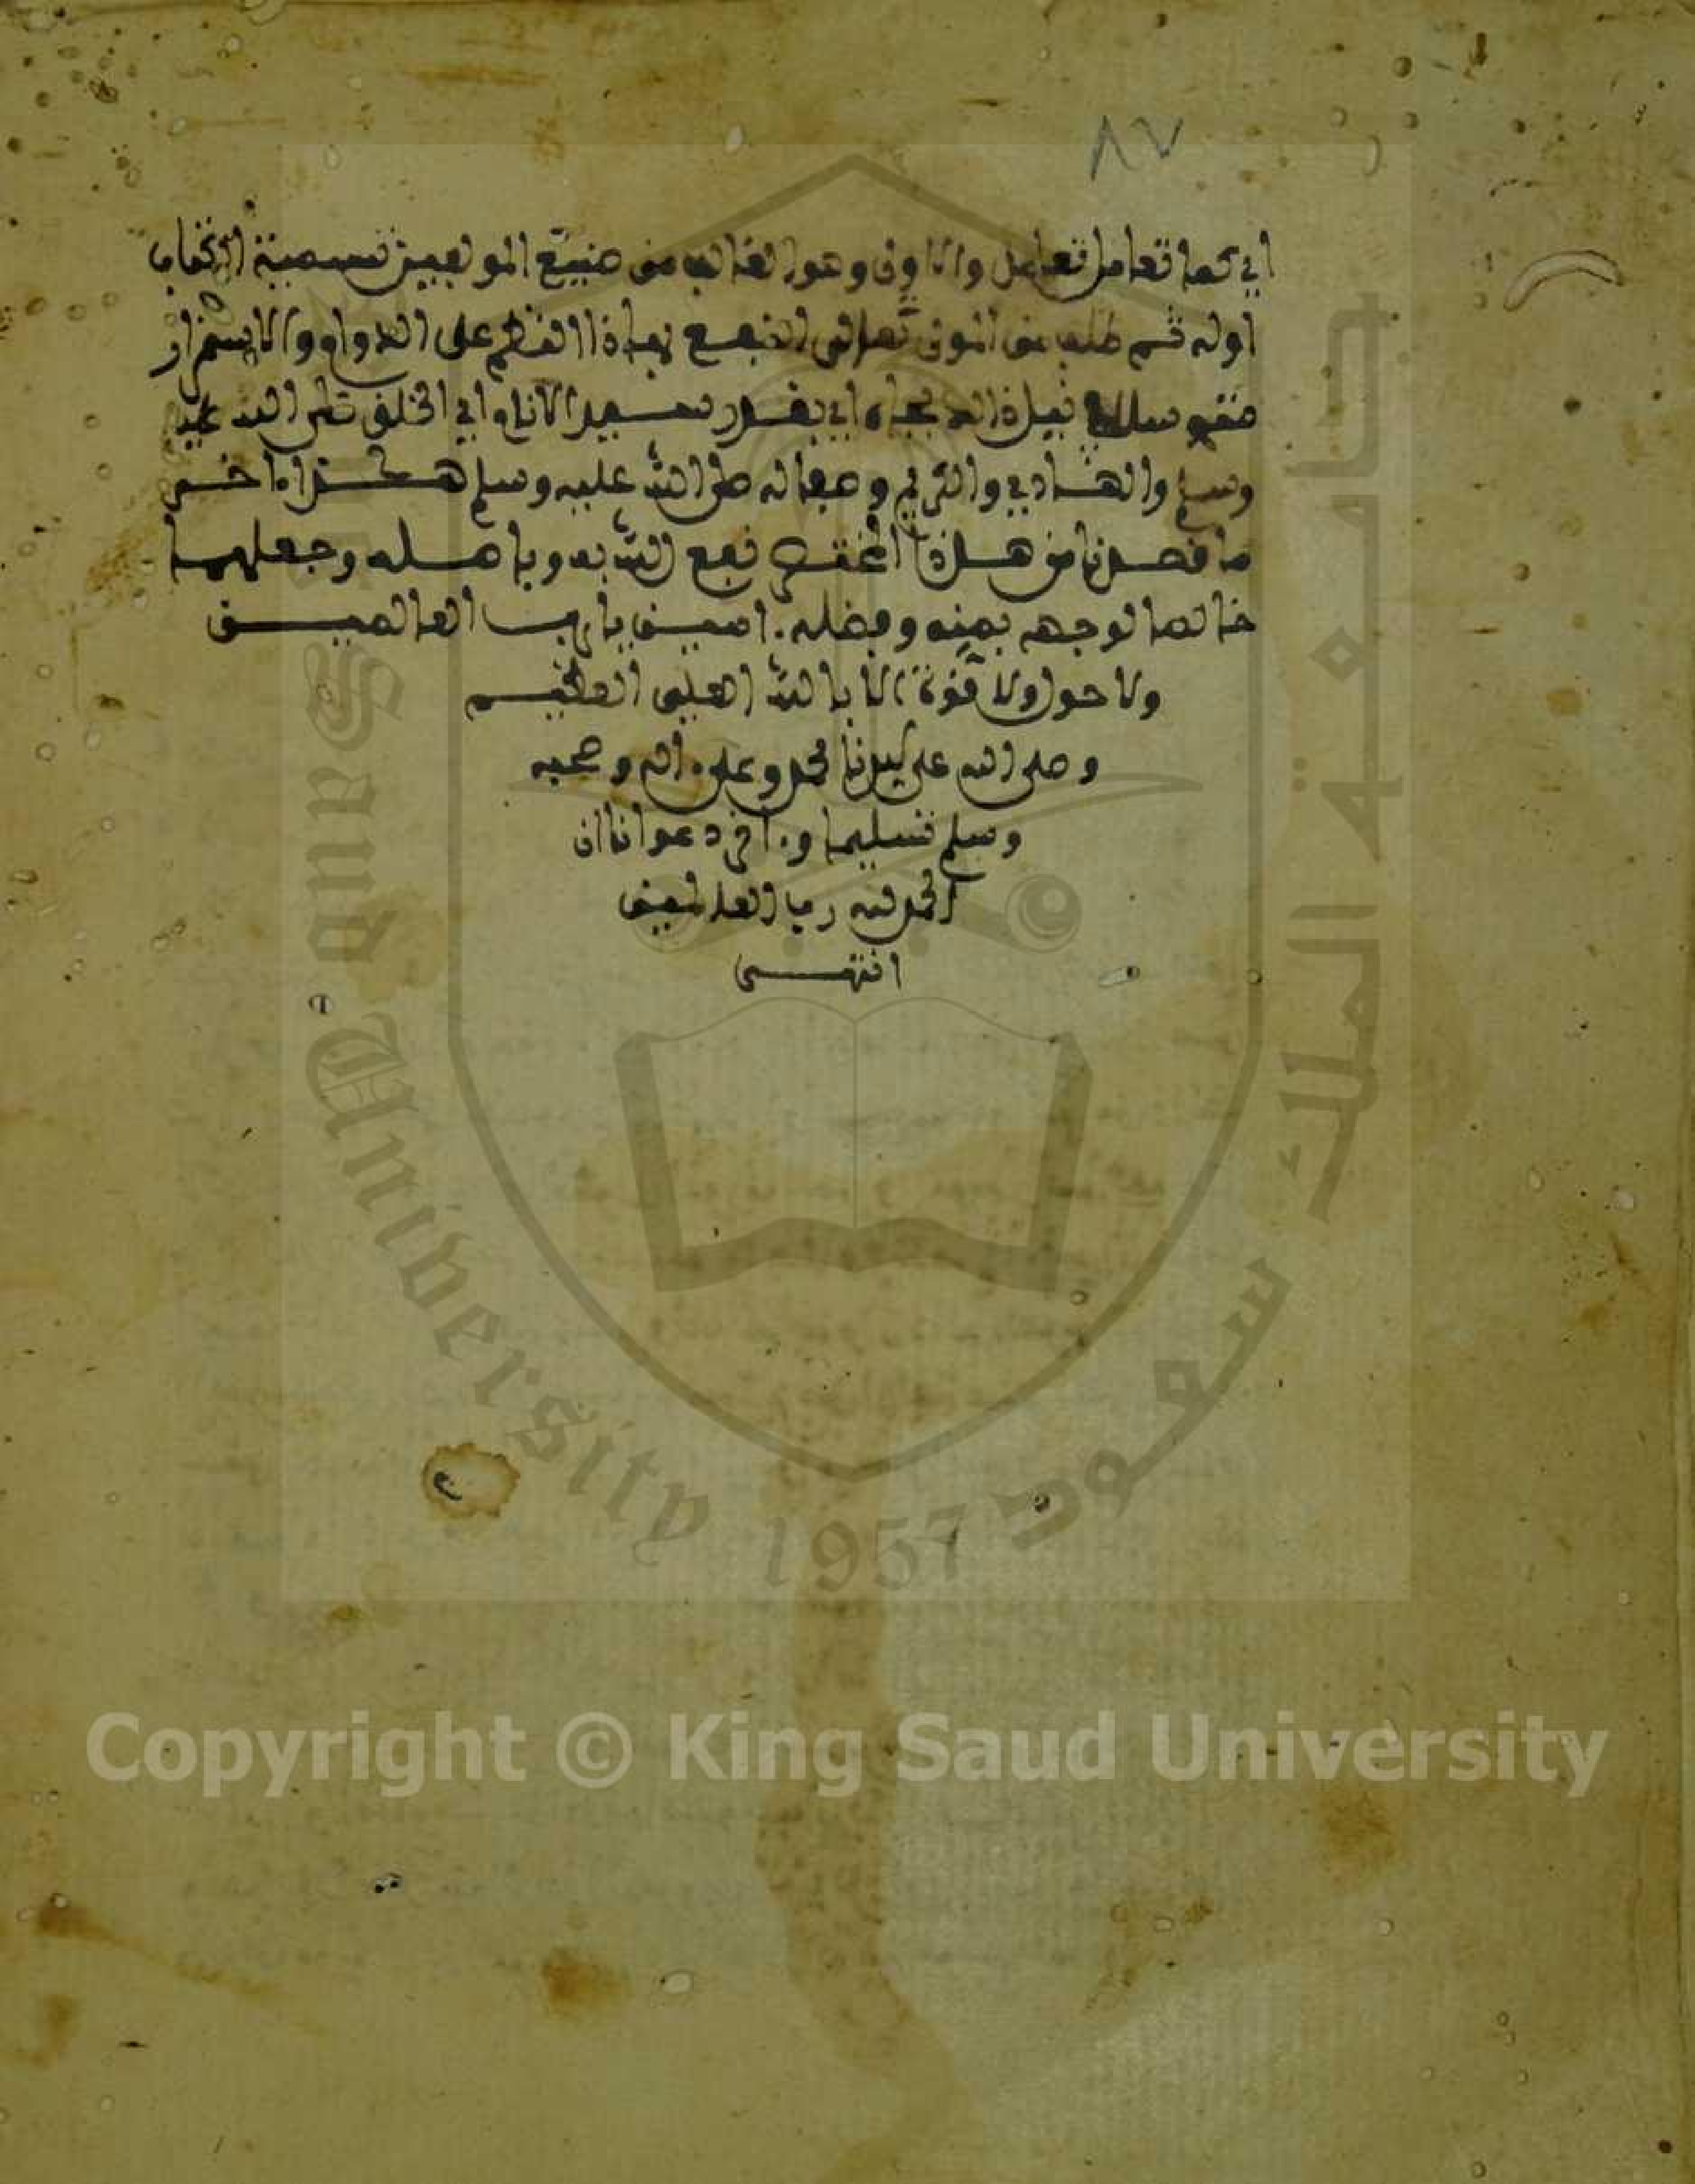 ٨٧
اي كما تعامل تعامل والاولى وهو الغالب من صنيع المولفين تسمية الكتاب
اوله ثم طلب من المولى تعالى النفع بهاذا النظم على الدوام والاستمرار
متوسلا في نيل ذالك بجاه اي بقدر سيد الانام اي الخلق صلى الله عليه
وسلم والهادي والكريم وصفا له صلى الله عليه وسلم هكذا اخر
ما قصدنا من هذا المختصر نفع الله به وباصله وجعلهما
خالصا لوجهه بمنه وفضله امين يا رب العالميـن
ولا حول ولا قوة الا بالله العلي العظيم
وصلى الله على سيدنا محمد وعلى اله وصحبه
وسلم تسليما واخر دعوانا ان
الحمد لله رب العالمين
انتهـى
جامعة الملك سعود
King Saud University 1957
Copyright © King Saud University